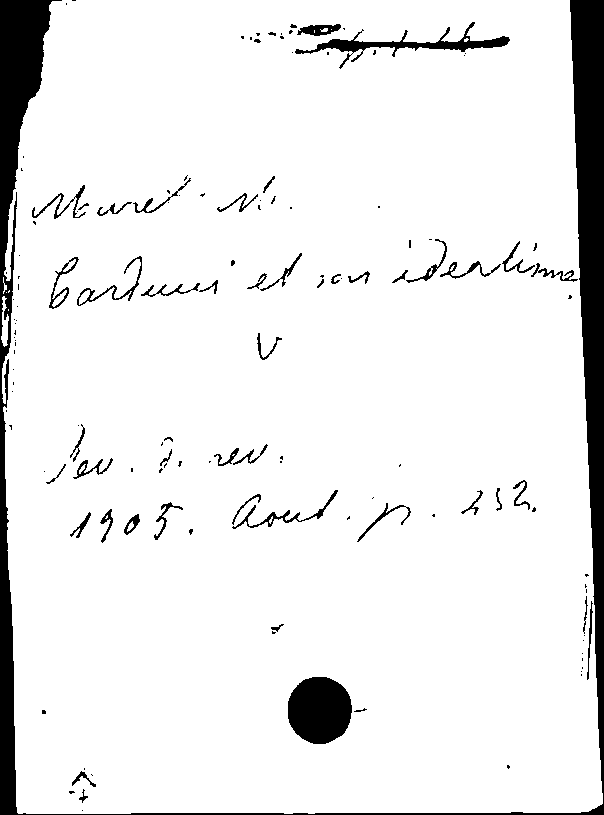 Muret M.
Carducci et son idealisme.
V
Rev. d. rev.
1905. Aout. p. 252.